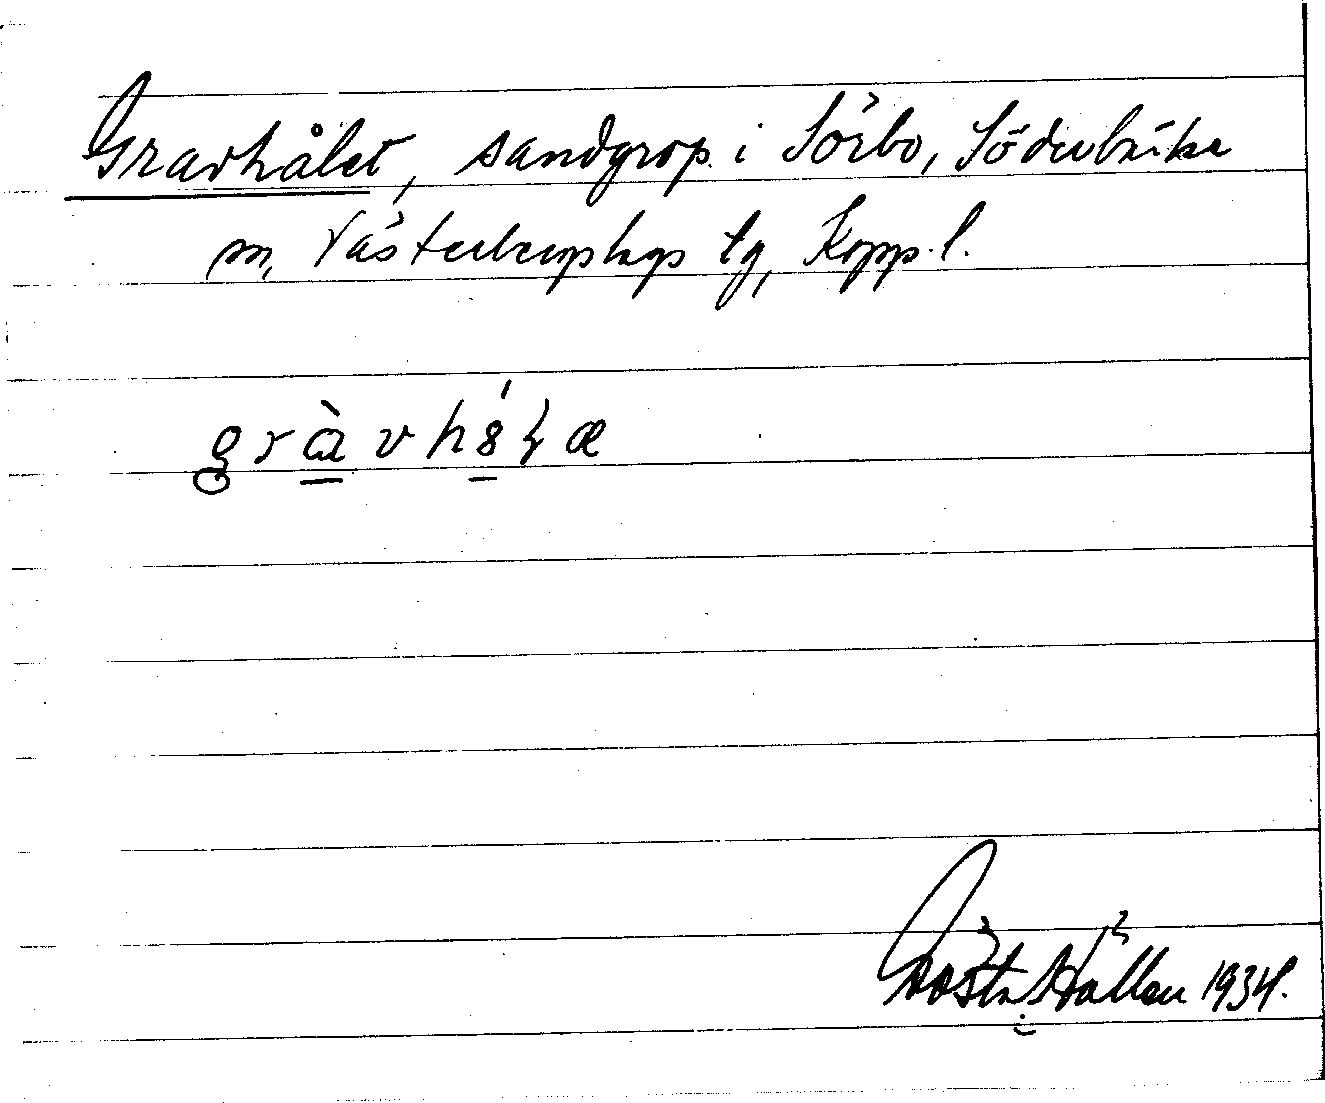 Gravhålet, sandgrop i Sörbo, Söderbärke
m, Västerbergslags tg, Kopp. l.
gràvhálæ
Gösta Hållen 1934.